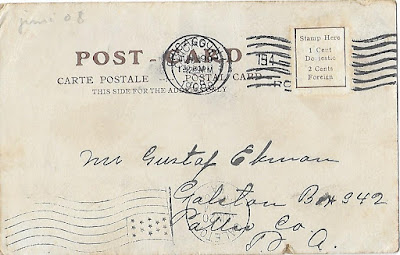 juni 08
POST-CARD
CARTE POSTALE POSTAL CARD
THIS SIDE FOR THE ADDRESS ONLY
Stamp Here
1 Cent
Domestic
2 Cents
Foreign
194
Mr Gustaf Ekman
Galston Box 942
Patter Co